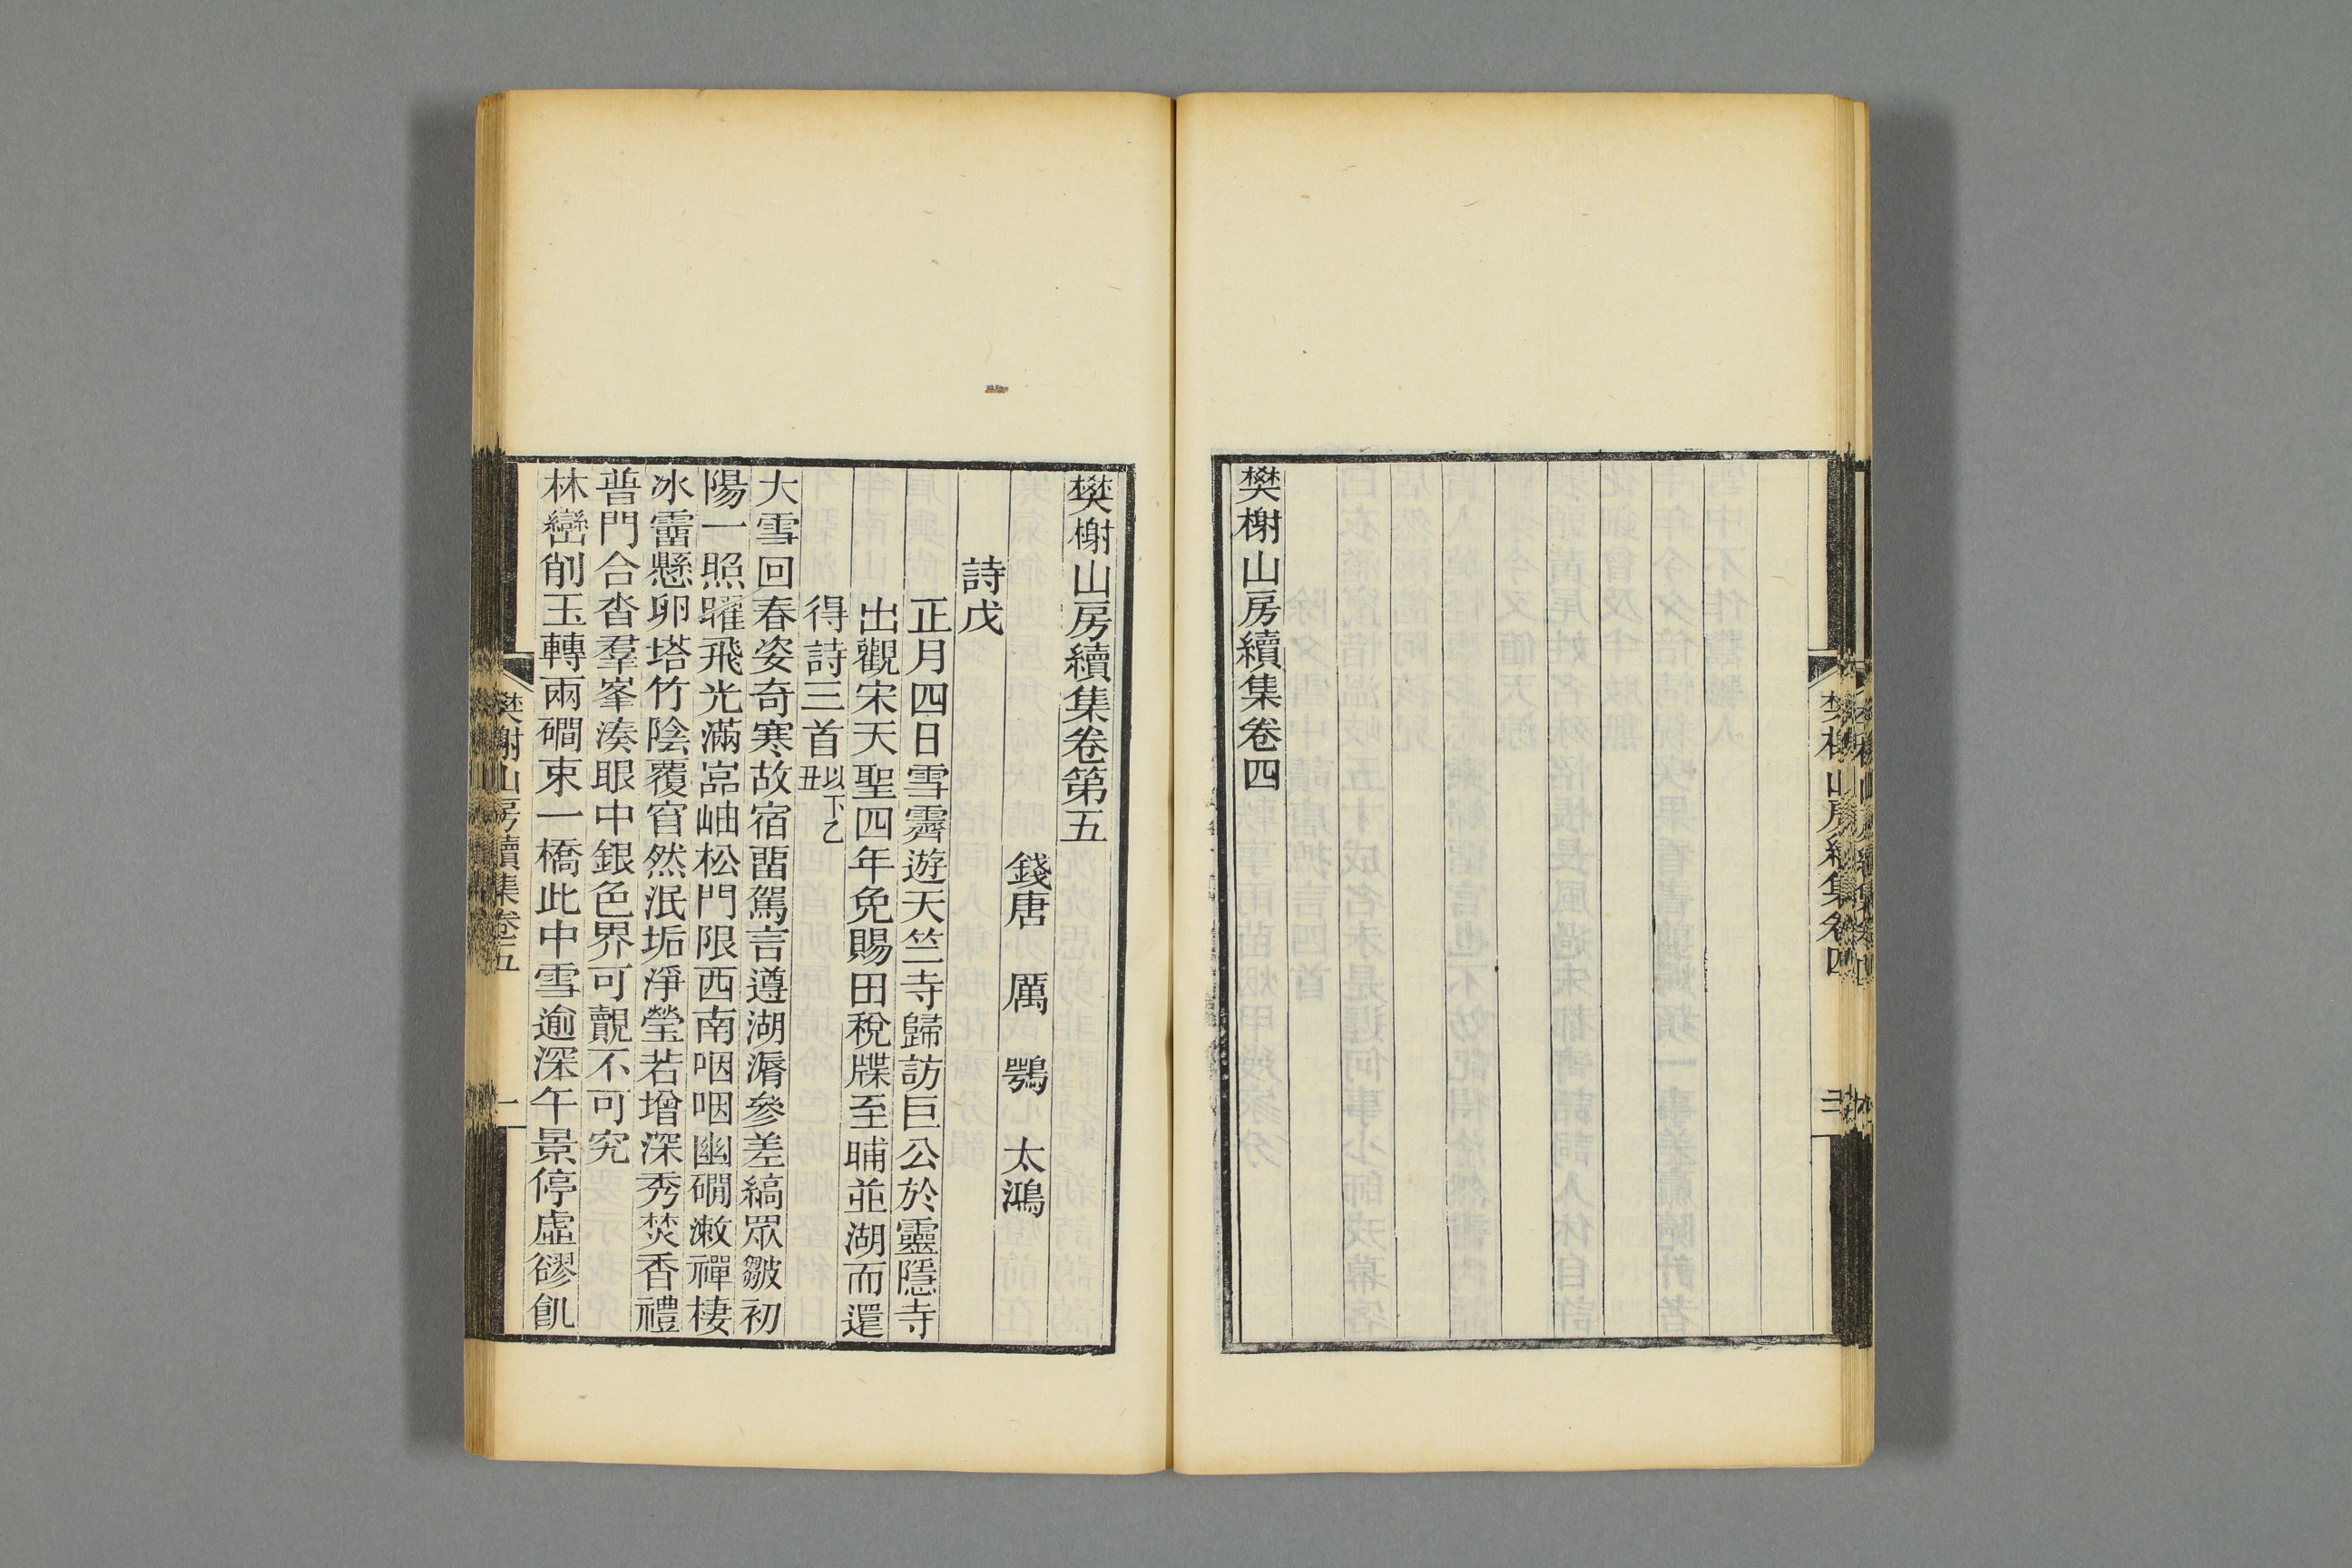 樊榭山房續集卷四
樊榭山房續集卷四
樊榭山房續集卷第五
錢唐 厲 鶚 太鴻
詩戊
正月四日雪霽遊天竺寺歸訪巨公於靈隱寺
出觀宋天聖四年免賜田稅牒至晡並湖而還
得詩三首以下乙丑
大雪回春姿奇寒故宿畱駕言遵湖漘參差縞眾皺初
陽一照躍飛光滿嵓岫松門限西南咽咽幽磵潄禪棲
冰霤懸卵塔竹陰覆窅然泯垢淨瑩若增深秀焚香禮
普門合沓羣峯湊眼中銀色界可覿不可究
林巒削玉轉兩磵束一橋此中雪逾深午景停虛㟉飢
樊榭山房續集卷五
一